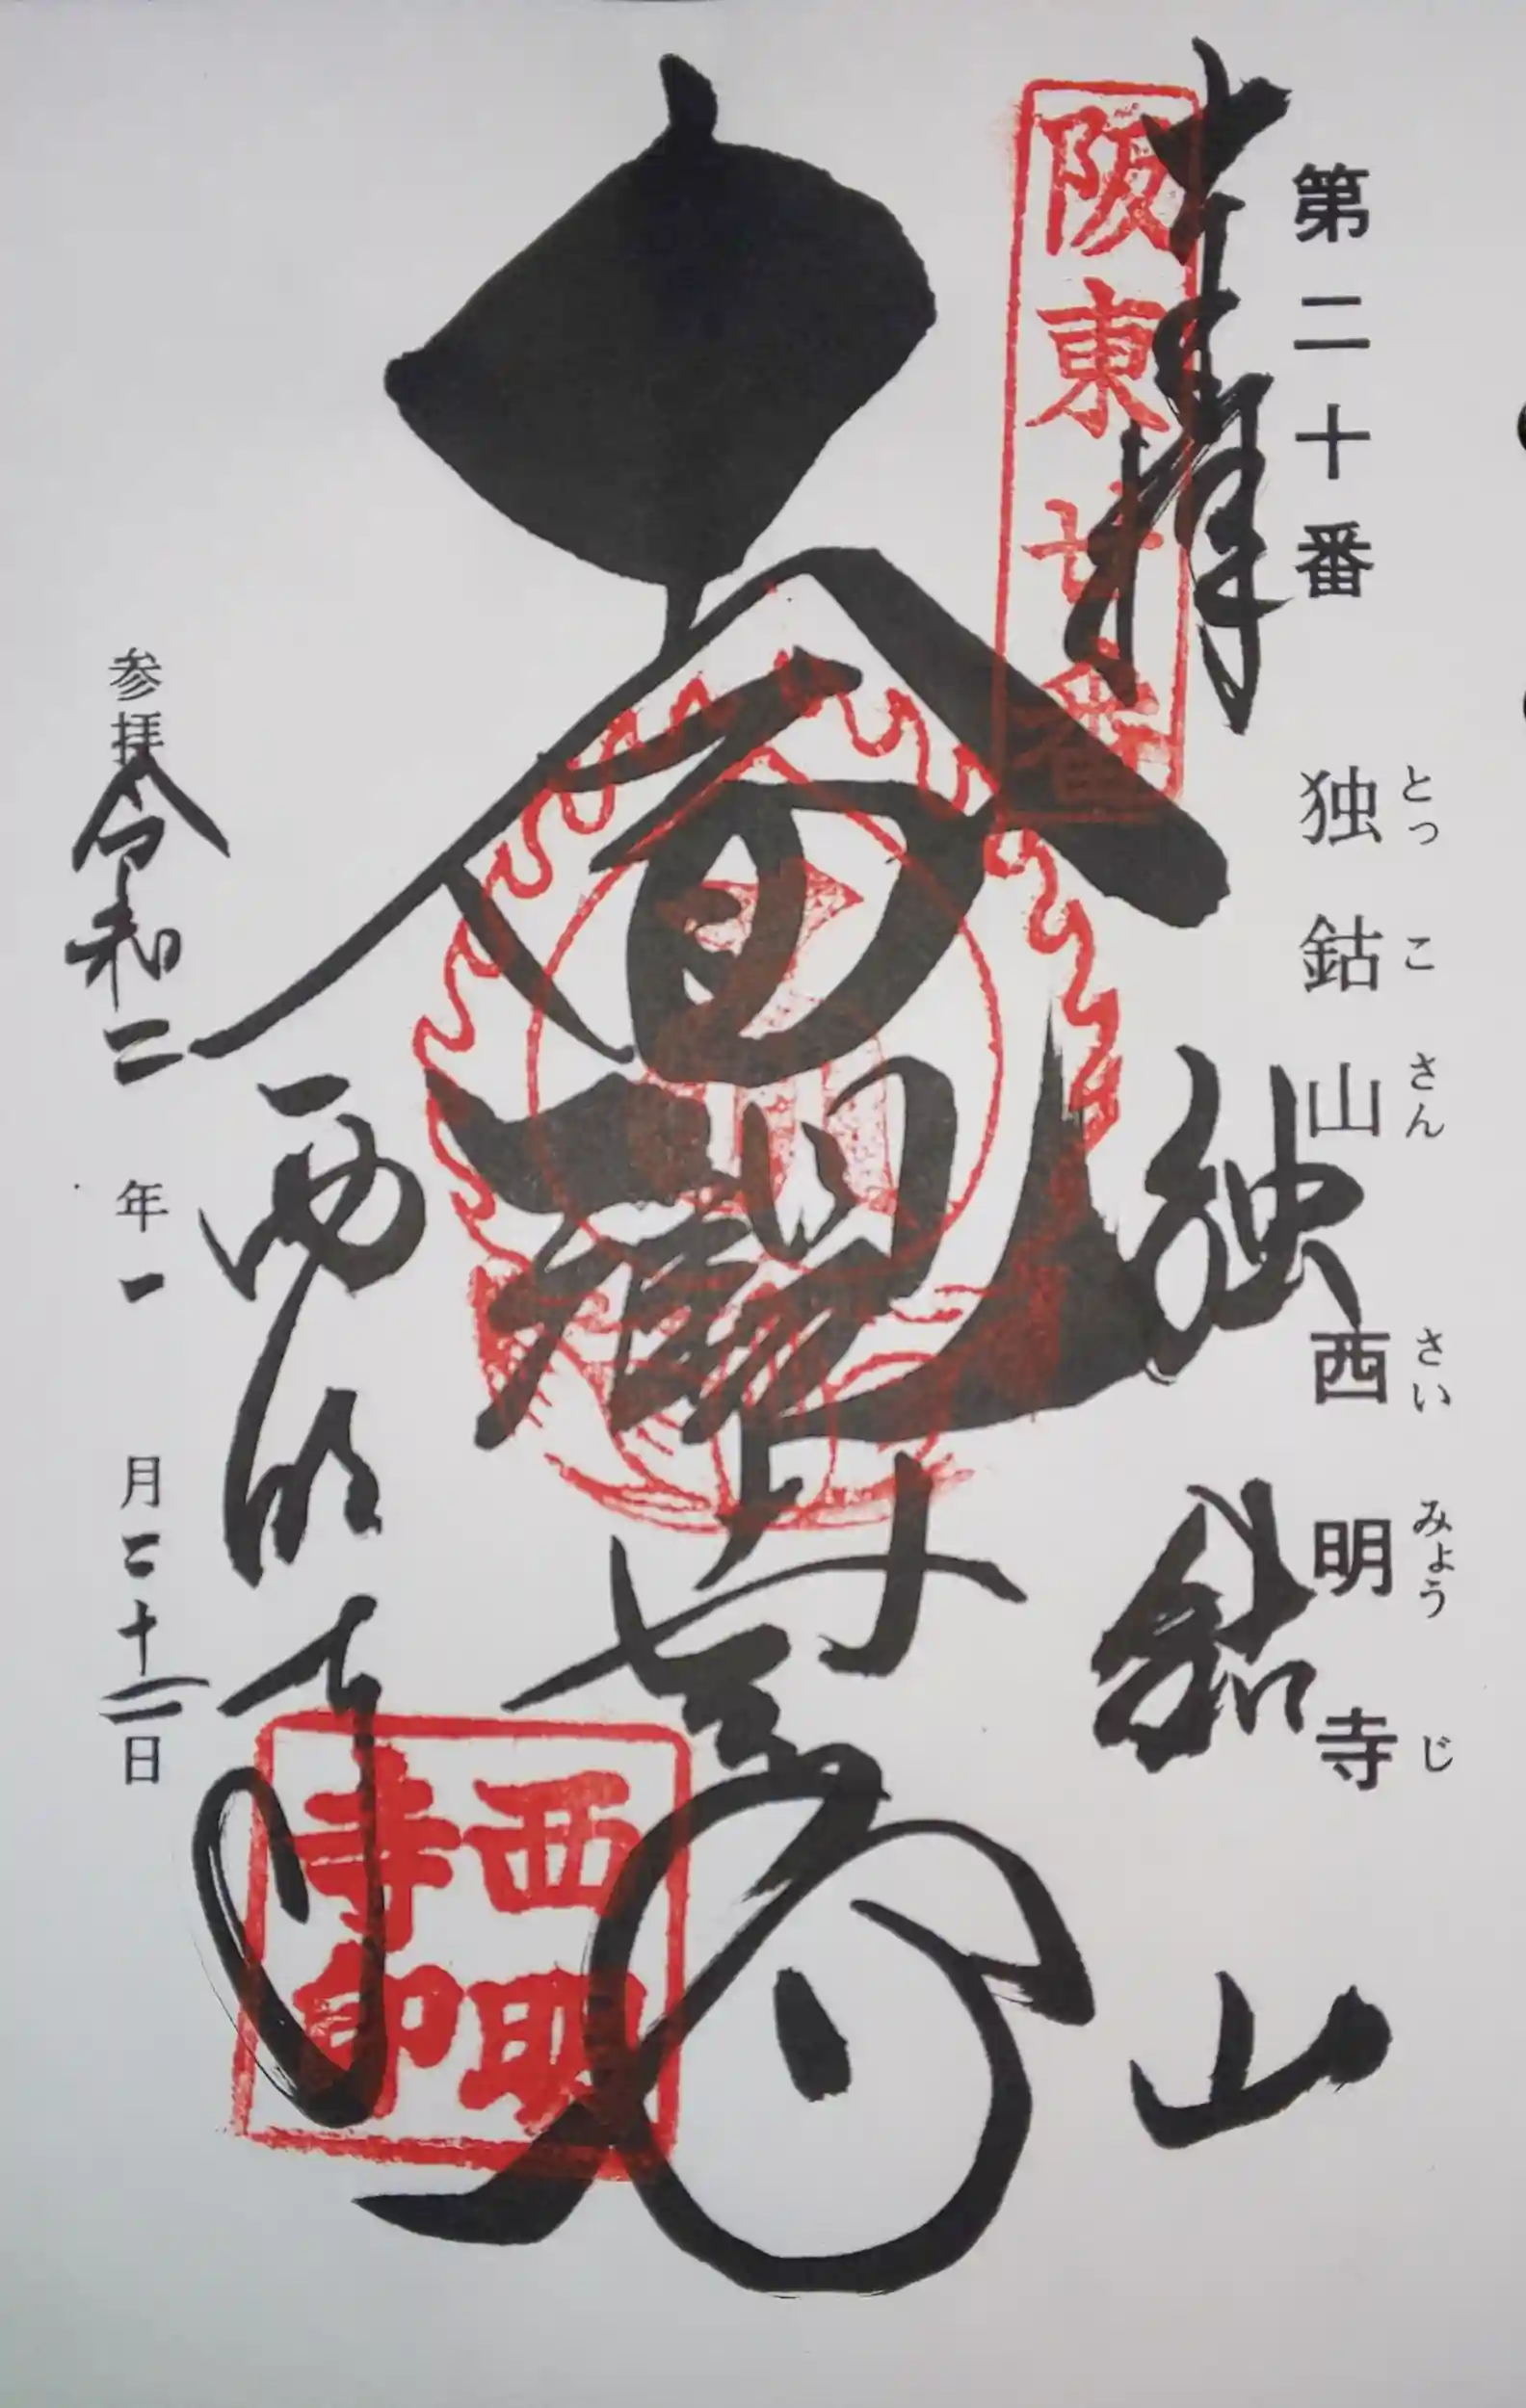 第二十番 独鈷山 西明寺
とっ こ さん さい みょう じ
奉拝 独鈷山
阪東廿番
西明寺
西明寺印
参拝令和二年一月二十二日